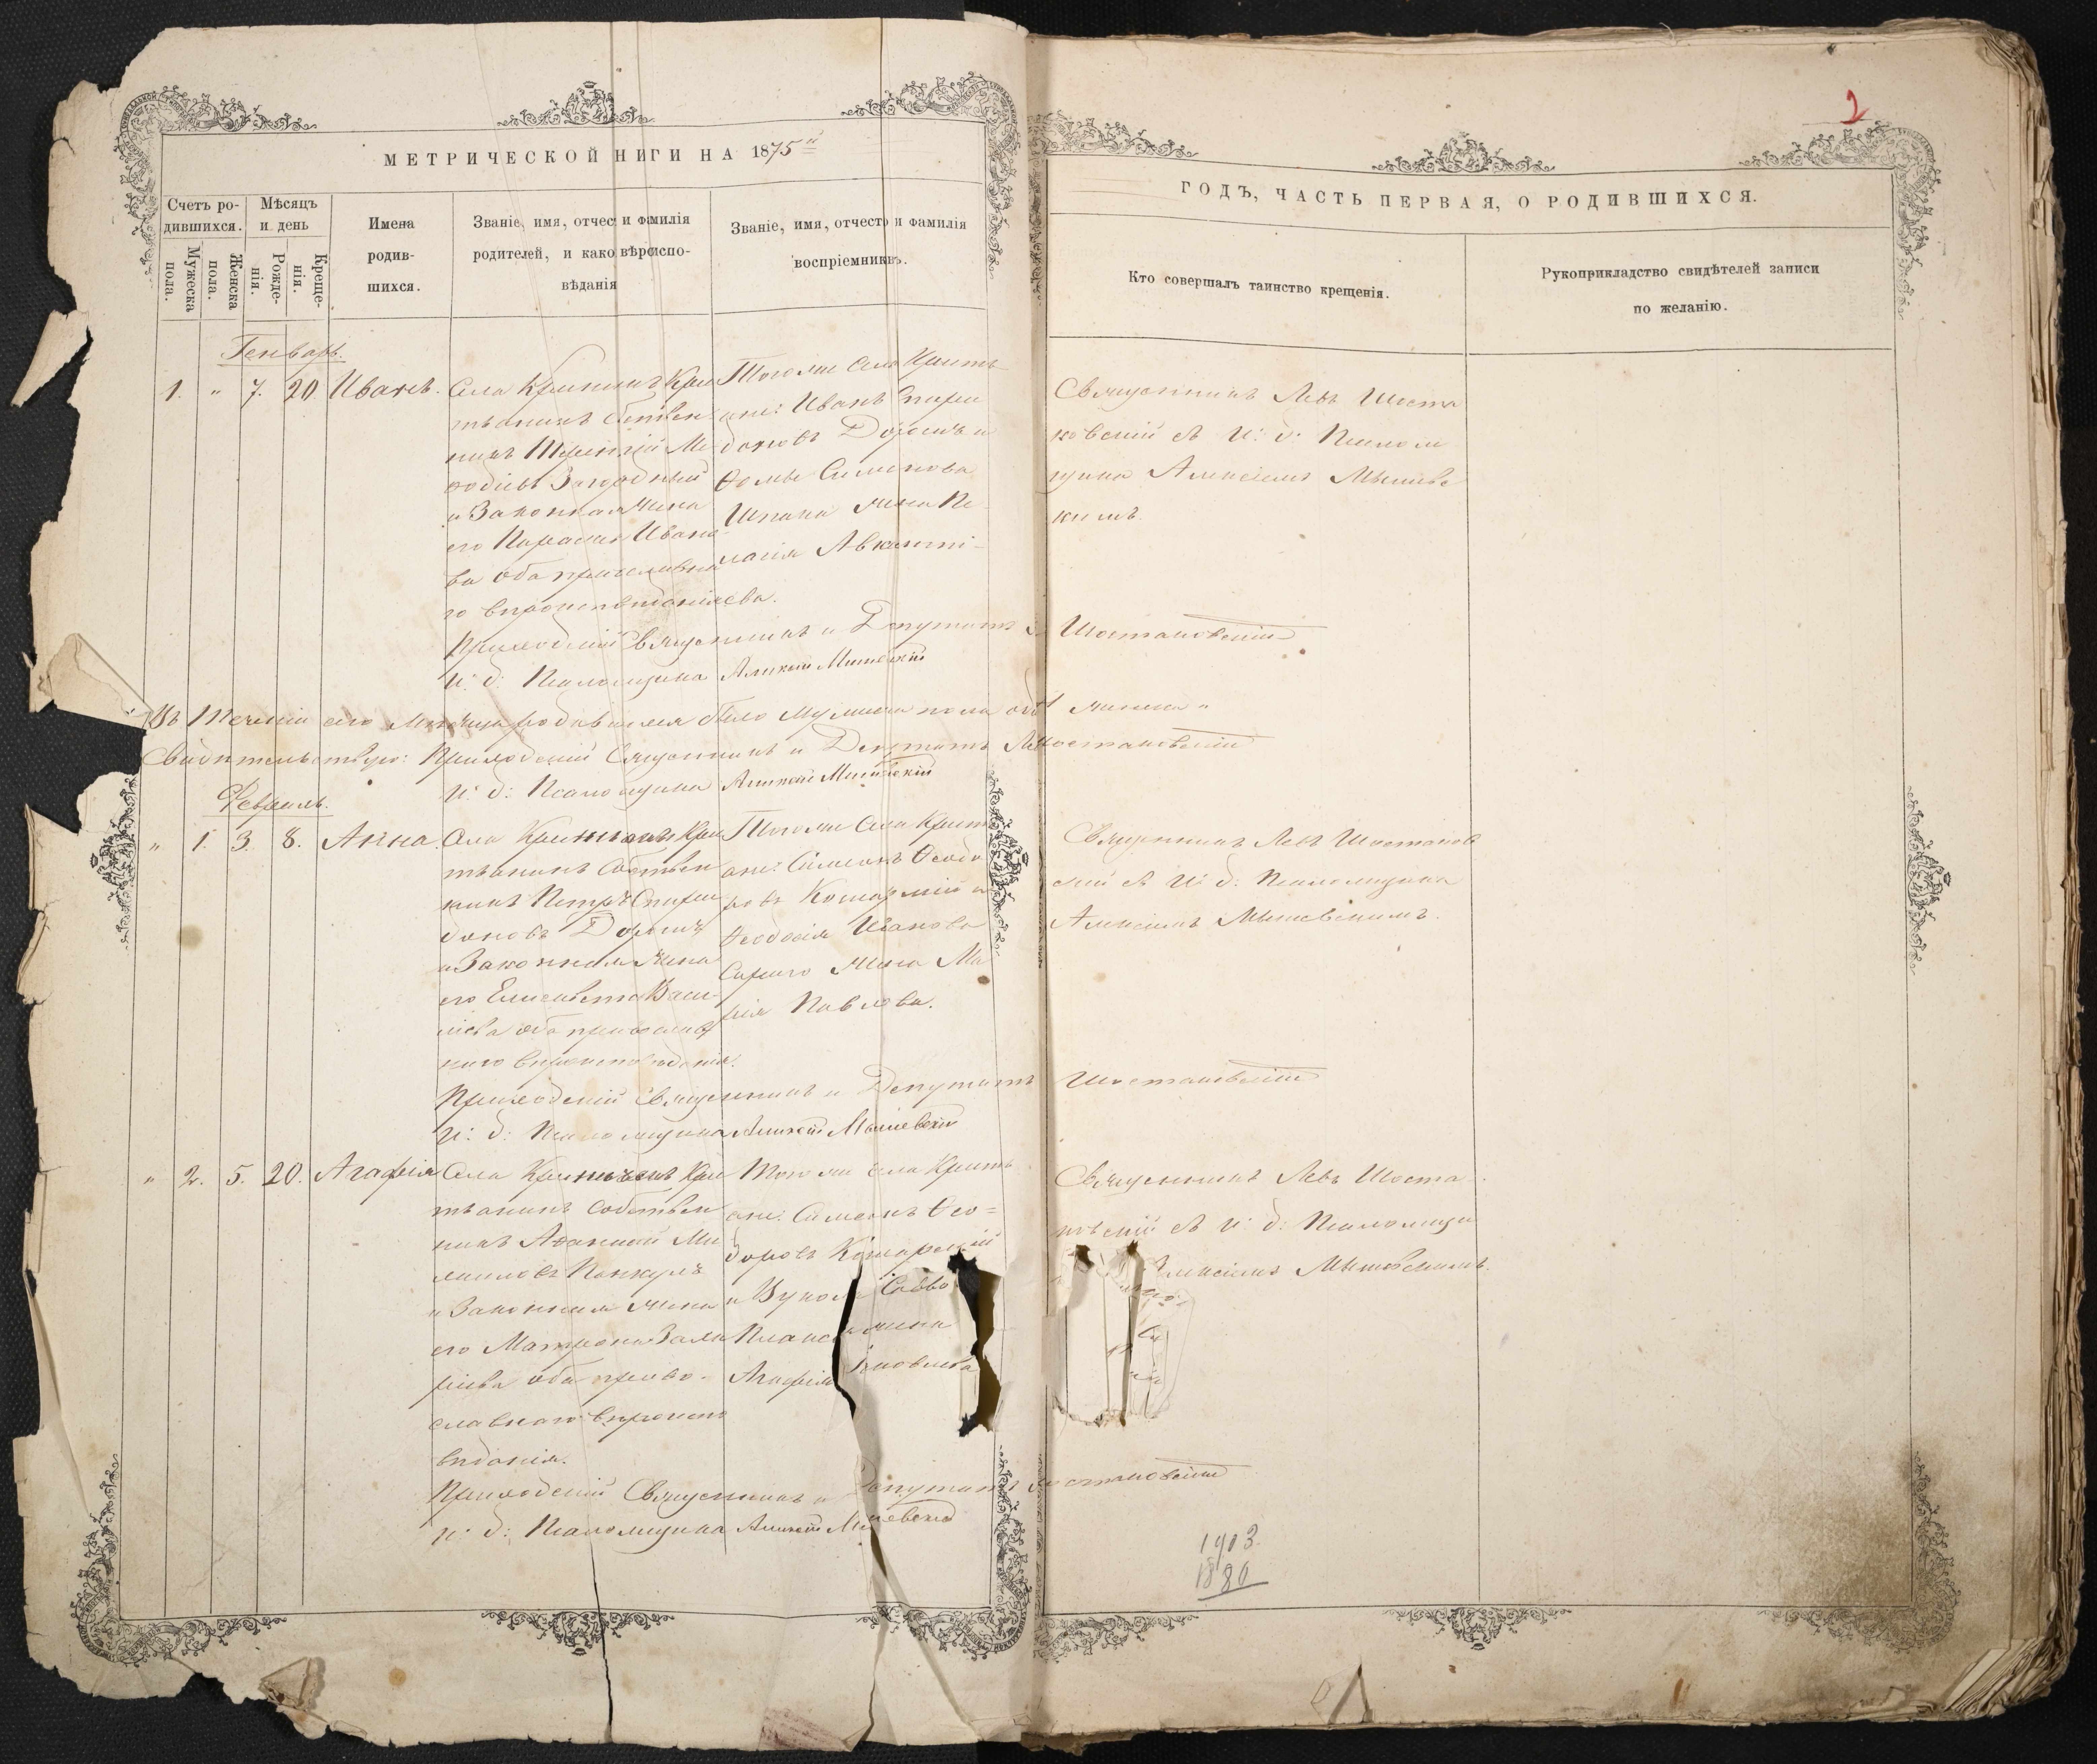 2
МЕТРИЧЕСКОЙ НИГИ НА 1875й
ГОДЪ, ЧАСТЬ ПЕРВАЯ, О РОДИВШИХСЯ.
Счетъ ро-
дившихся.
Мужеска пола.
Женска пола.
Мѣсяцъ
и день
Рожде-
нія.
Креще-
нія.
Имена
родив-
шихся.
Званіе, имя, отчес и фамилія
родителей, и како вѣроиспо-
вѣданія
Званіе, имя, отчест и фамилія
воспріемниквъ.
Кто совершалъ таинство крещенія.
Рукоприкладство свидѣтелей записи
по желанію.
Генварь.
1. " 7. 20 Иванъ.
Села Криничекъ Кре
стьянинъ собствен
никъ
Загородный
и Законная жена
его Параскева Ивано
ва оба православна
го вѣроисповѣданія
Того же села Кресть
яне: Иванъ Спири
доновъ Дорошъ и
Ѳомы Симонова
жена Пе
лагія
ева.
Священникъ Левъ Шоста
ковскій съ И: д: Псалом
щика Алексіемъ Мышевс
кимъ.
Приходскій Священникъ и Депутатъ Л. Шостаковскій
И: д: Псаломщика Алексій Мышевскій
Въ Теченіи сего Мѣсяца родившихся было мужеска пола одъ женска "
Свидѣтельствую: Приходскій Священникъ и Депутатъ Шостаковскій
И: д: Псаломщика Алексій Мышевскій
Февраль.
" 1. 3. 8. Анна.
Села Криничекъ Кре
стьянинъ собствен
никъ Петръ Спири
доновъ Дорошъ
и Законная жена
его Елисавета Васи
ліева оба православ
наго вѣроисповѣданія.
Того же села Кресть
яне: Симеонъ Ѳеодо
ровъ Комарскій и
Ѳеодосія Иванова
Сираго жена Ма
рія Павлова.
Священникъ Левъ Шостаков
скій съ И: д: Псаломщика
Алексіемъ Мышевскимъ.
Приходскій Священникъ и Депутатъ Шостаковскій
И: д: Псаломщика Алексій Мышевскій
" 2. 5. 20. Агафія
Села Криничекъ Кре
стьянинъ собствен
никъ Аѳанасій Ми
хаиловъ
и Законная жена
его Матрона Заха
ріева оба право-
славнаго вѣроиспо
вѣданія.
Того же села Кресть
яне: Симеонъ Ѳео=
доровъ Комарскій
и Вукола Савво
жена
Агафія Яковлева
Священникъ Левъ Шоста
ковскій съ И: д: Псаломщи
Алексіемъ Мышевскимъ.
Приходскій Священникъ и Депутатъ Шостаковскій
И: д: Псаломщика Алексій Мышевскій
1903.
1880